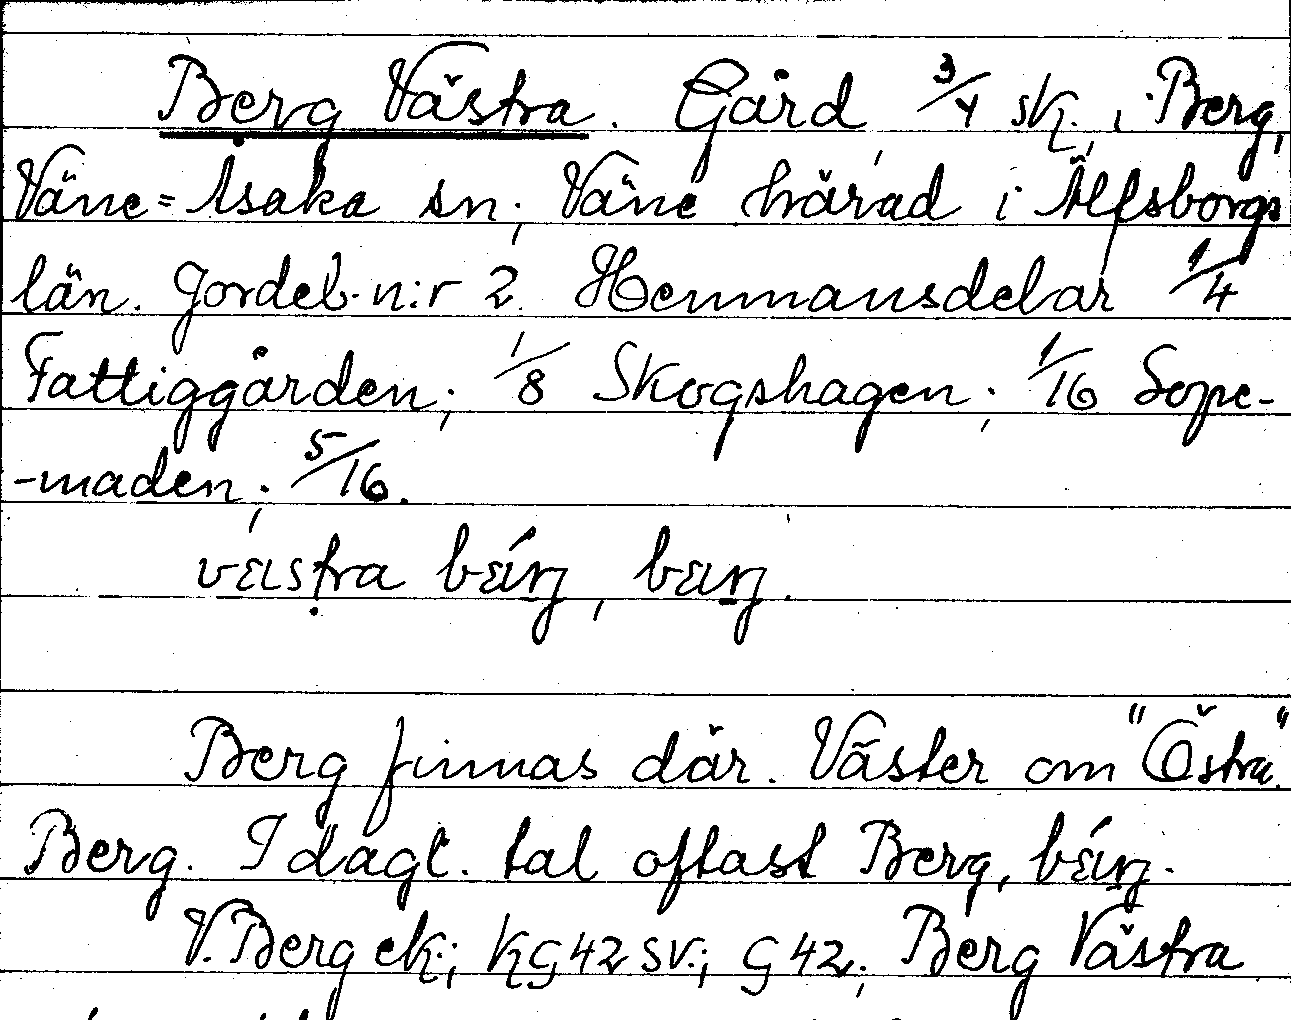 Berg Västra. Gård, 3/4 sk., i Berg,
Väne=Åsaka sn; Väne härad i Älfsborgs
län. Jordeb. n:r 2. Hemmansdelar 1/4
Fattiggården; 1/8 Skogshagen; 1/16 Sope-
-maden; 5/16.
västra
Berg finnas där. Väster om "Östra"
Berg. I dagl. tal oftast Berg,
V. Berg ek.; KG 42 SV.; G 42; Berg Västra